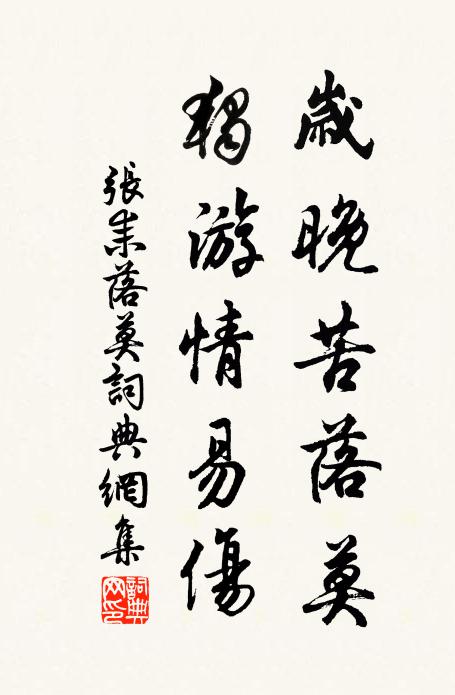 歲晚苦落莫
獨游情易傷
張耒落莫詞典網集
詞典網印